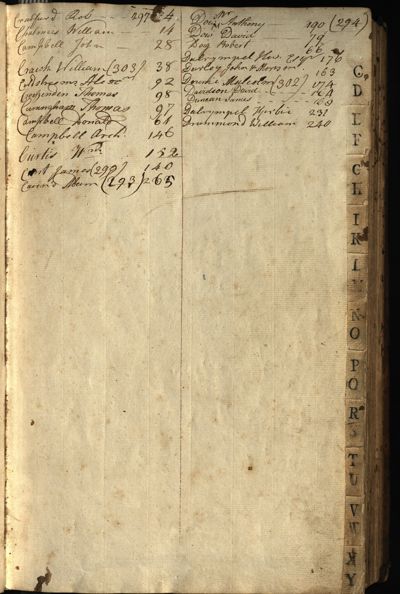 Crawfurd Rob 297 4
Chalmers William 14
Campbell John 28
Craish William (303) 38
92
Crittenden Thomas 98
Cunningham Thomas 97
Campbell Donald 61
Campbell Arch 146
Curtis Wm 152
Cart James (299) 140
(293) 265
Doe Mr Anthony 190 (294)
Dow David 79
Dog Robert 66
Dalrympel Hew 176
Dooley John 163
Malcolm (302) 174
Davidson David 164
Duncan James
Dalrympel 231
Drummond William 240
C
D
E
F
G
H
I
K
L
N
O
P
Q
R
T
U
V W
X Y